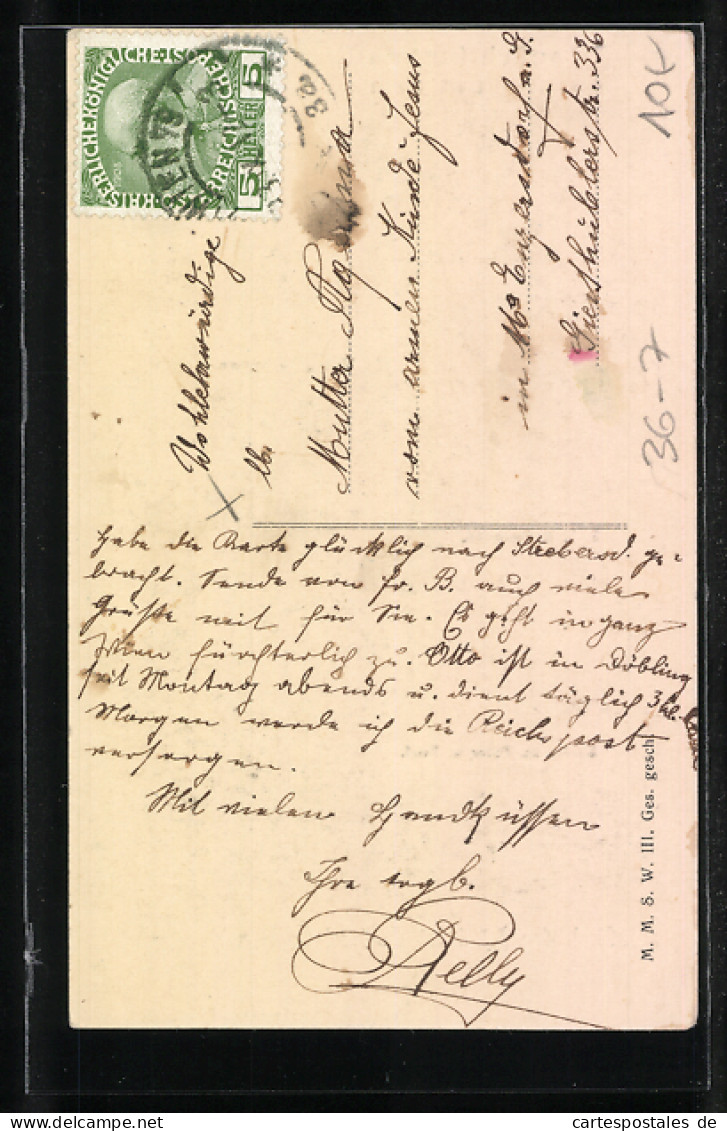 KAISERLICHE KÖNIGLICHE ÖSTERREICHISCHE POST
5 HALER 5
1908
WIEN
Wohlehrwürdige
Mutter
vom armen Kinde Jesus
in Ma Enzersdorf a. G.
Giesshüblerstr. 336
10€
36-7
Habe die Karte glücklich nach Strebersd. ge-
bracht. Sende von Fr. B. auch viele
Grüße mit für Sie. Es geht in ganz
Wien fürchterlich zu. Otto ist in Döbling
seit Montag abends u. dient täglich 3
Morgen werde ich die Reichspost
versorgen.
Mit vielen Handküssen
Ihre ergb.
Relly
M. M. S. W. III. Ges. gesch.
www.delcampe.net
cartespostales de